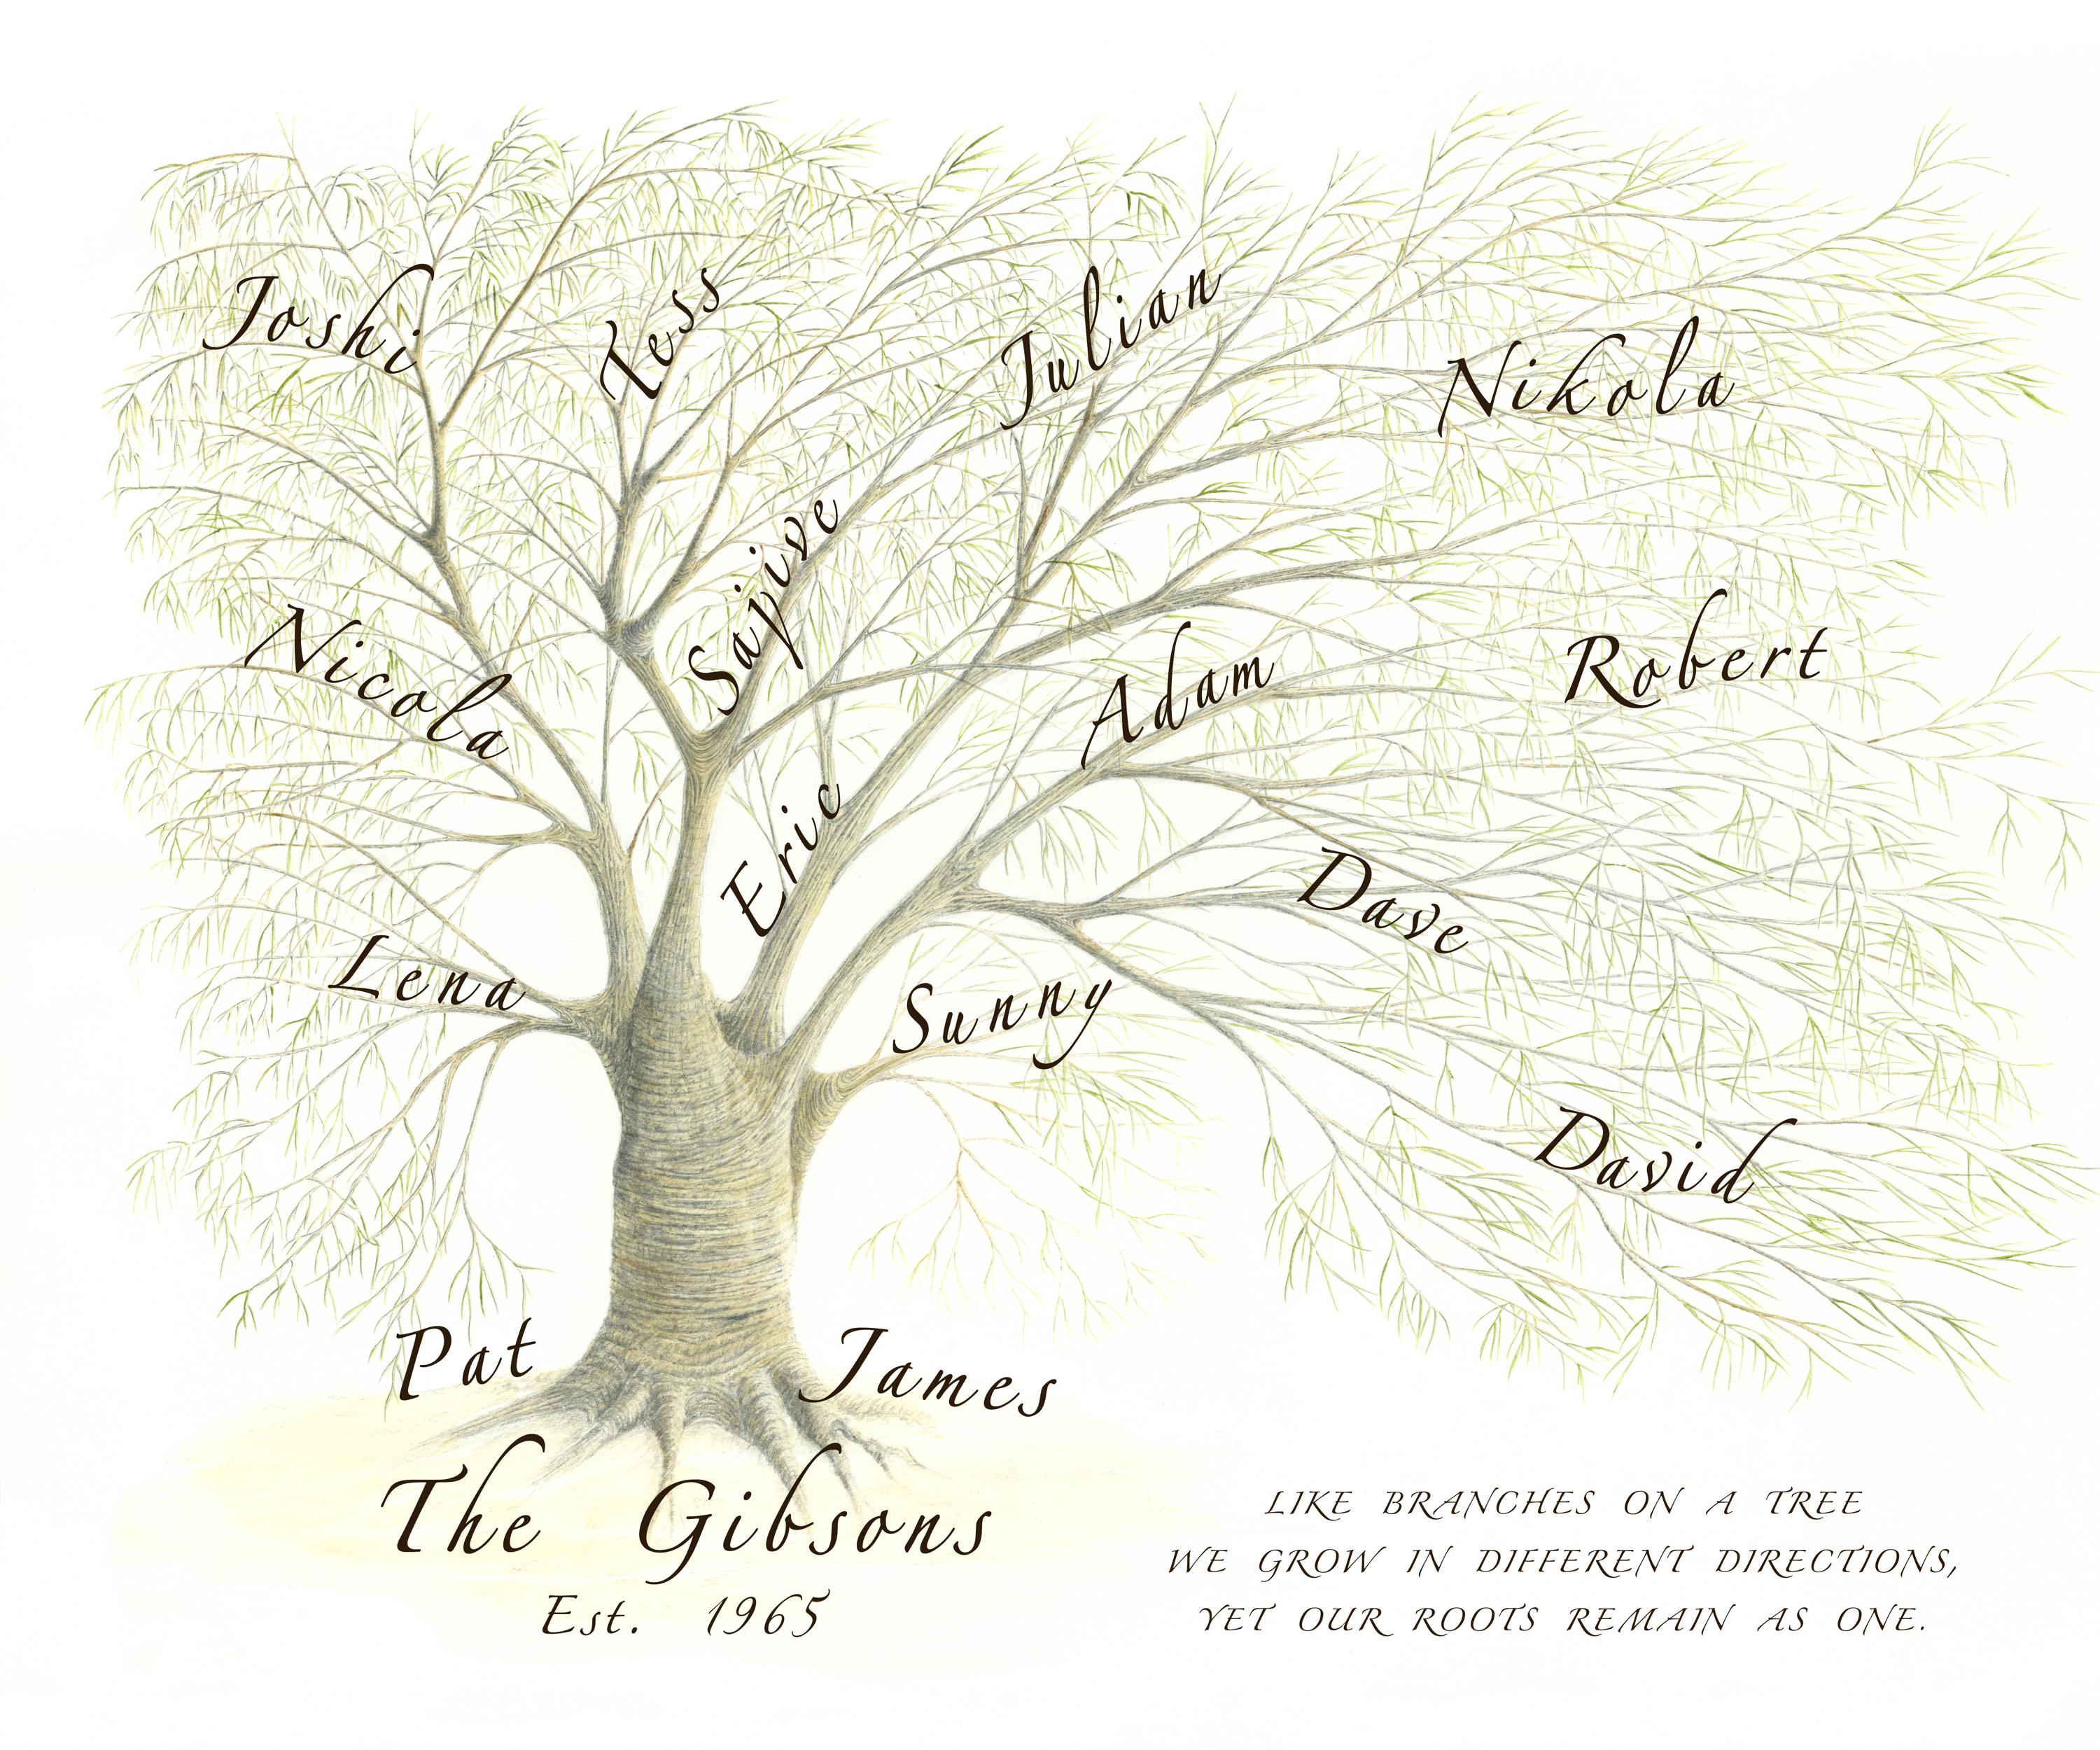 Joshi
Tess
Julian
Nikola
Sajive
Nicola
Adam
Robert
Eric
Dave
Lena
Sunny
David
Pat
James
The Gibsons
Est. 1965
LIKE BRANCHES ON A TREE
WE GROW IN DIFFERENT DIRECTIONS,
YET OUR ROOTS REMAIN AS ONE.